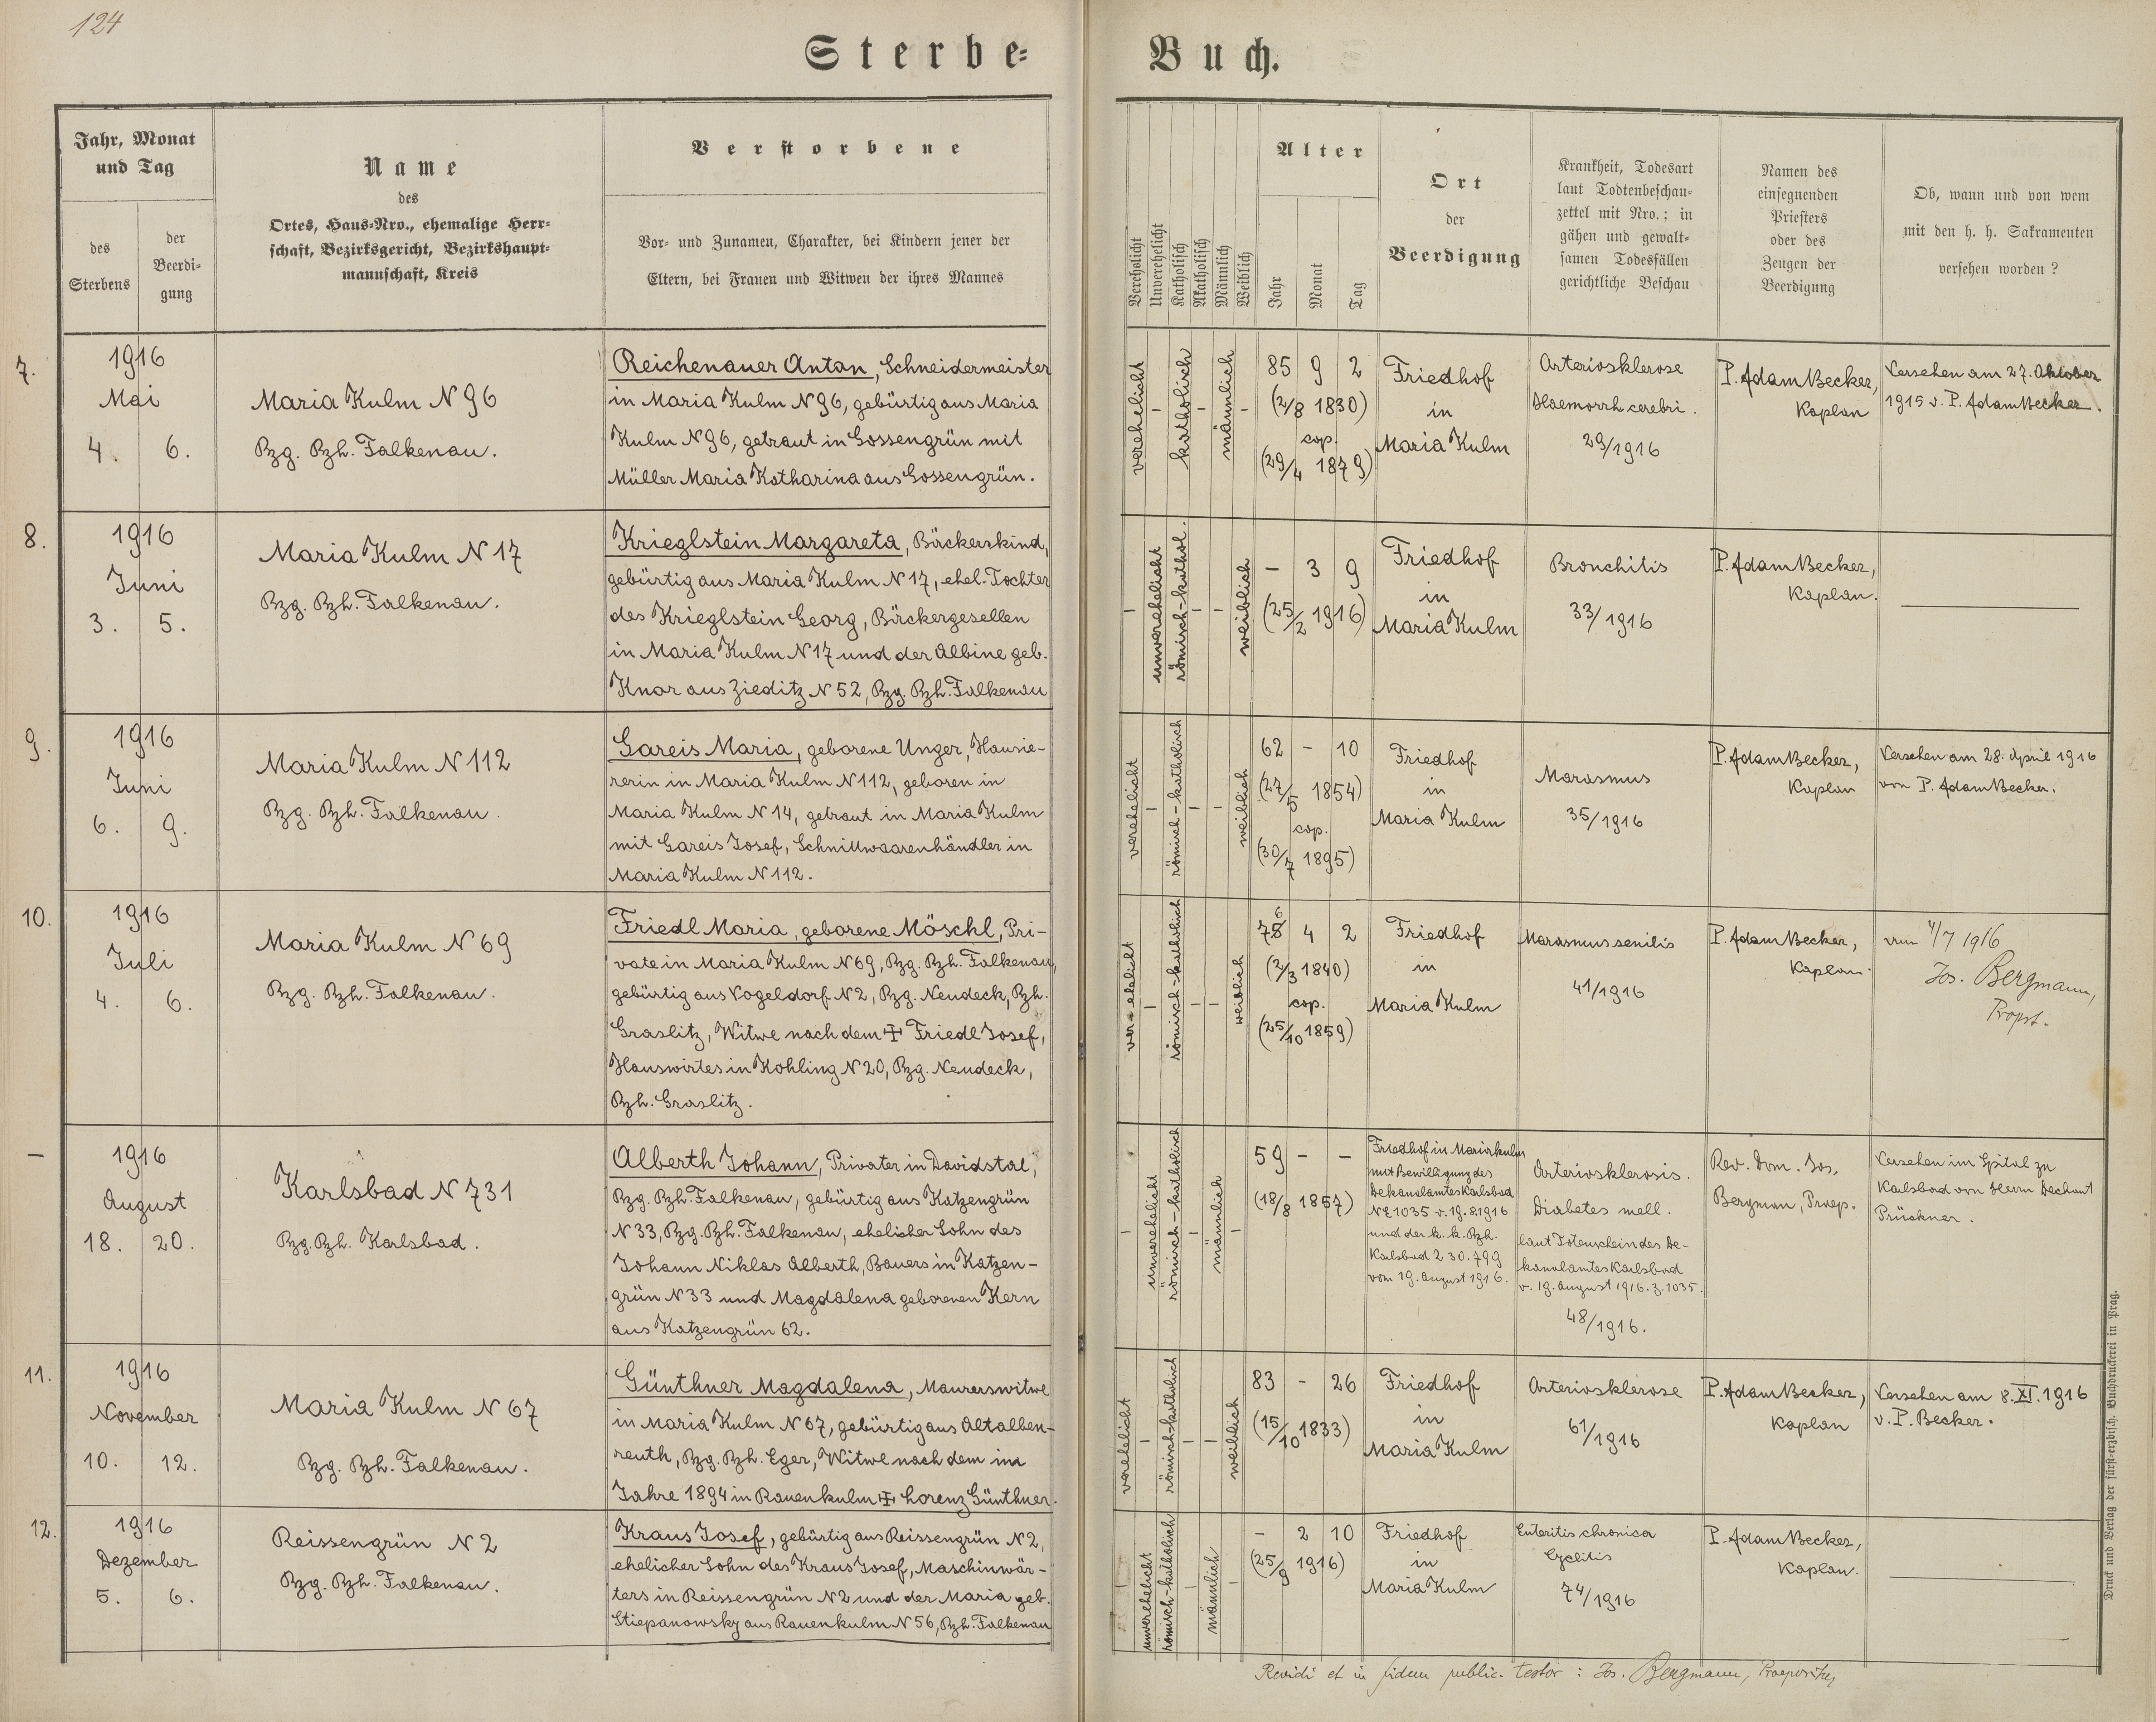 124
Sterbe-
Buch.
Jahr, Monat
und Tag
des
Sterbens
der
Beerdi-
gung
Name
des
Ortes, Haus-Nro., ehemalige Herr-
schaft, Bezirksgericht, Bezirkshaupt-
mannschaft, Kreis
Verstorbene
Vor- und Zunamen, Charakter, bei Kindern jener der
Eltern, bei Frauen und Witwen der ihres Mannes
Verehelicht
Unverehelicht
Katholisch
Akatholisch
Männlich
Weiblich
Alter
Jahr
Monat
Tag
Ort
der
Beerdigung
Krankheit, Todesart
laut Todtenbeschau-
zettel mit Nro.; in
gähen und gewalt-
samen Todesfällen
gerichtliche Beschau
Namen des
einsegnenden
Priesters
oder des
Zeugen der
Beerdigung
Ob, wann und von wem
mit den h. h. Sakramenten
versehen worden?
7.
1916
Mai
4. 6.
Maria Kulm N 96
Bzg. Bzh. Falkenau.
Reichenauer Anton, Schneidermeister
in Maria Kulm N 96, gebürtig aus Maria
Kulm N 96, getraut in Gossengrün mit
Müller Maria Katharina aus Gossengrün.
verehelicht
-
katholisch
-
männlich
-
85 9 2
(2/8 1830)
cop.
(29/4 1879)
Friedhof
in
Maria Kulm
Arteriosklerose
Haemorrh. cerebri.
29/1916
P. Adam Becker,
Kaplan
Versehen am 27. Oktober
1915 v. P. Adam Becker.
8.
1916
Juni
3. 5.
Maria Kulm N 17
Bzg. Bzh. Falkenau.
Krieglstein Margareta, Bäckerskind,
gebürtig aus Maria Kulm N 17, ehel. Tochter
des Krieglstein Georg, Bäckergesellen
in Maria Kulm N 17 und der Albine geb.
Knar aus Zieditz N 52, Bzg. Bzh. Falkenau
-
unverehelicht
römisch-kathol.
-
-
weiblich
- 3 9
(25/2 1916)
Friedhof
in
Maria Kulm
Bronchitis
33/1916
P. Adam Becker,
Kaplan.
9.
1916
Juni
6. 9.
Maria Kulm N 112
Bzg. Bzh. Falkenau.
Gareis Maria, geborene Unger, Hausie-
rerin in Maria Kulm N 112, geboren in
Maria Kulm N 14, getraut in Maria Kulm
mit Gareis Josef, Schnittwaarenhändler in
Maria Kulm N 112.
verehelicht
-
römisch-katholisch
-
-
weiblich
62 - 10
(27/5 1854)
cop.
(30/7 1895)
Friedhof
in
Maria Kulm
Marasmus
35/1916
P. Adam Becker,
Kaplan
Versehen am 28. April 1916
von P. Adam Becker.
10.
1916
Juli
4. 6.
Maria Kulm N 69
Bzg. Bzh. Falkenau.
Friedl Maria, geborene Möschl, Pri-
vate in Maria Kulm N 69, Bzg. Bzh. Falkenau,
gebürtig aus Vogeldorf N 2, Bzg. Neudeck, Bzh.
Graslitz, Witwe nach dem ✝ Friedl Josef,
Hauswirtes in Kohling N 20, Bzg. Neudeck,
Bzh. Graslitz.
verehelicht
-
römisch-katholisch
-
-
weiblich
76 4 2
(2/3 1840)
cop.
(25/10 1859)
Friedhof
in
Maria Kulm
Marasmus senilis
41/1916
P. Adam Becker,
Kaplan.
4/7 1916
Jos. Bergmann,
Propst.
-
1916
August
18. 20.
Karlsbad N 731
Bzg. Bzh. Karlsbad.
Alberth Johann, Privater in Davidstal,
Bzg. Bzh. Falkenau, gebürtig aus Katzengrün
N 33, Bzg. Bzh. Falkenau, ehelicher Sohn des
Johann Niklas Alberth, Bauers in Katzen-
grün N 33 und Magdalena geborenen Kern
aus Katzengrün 62.
-
unverehelicht
römisch-katholisch
-
männlich
-
59 - -
(18/8 1857)
Friedhof in Mariakulm
mit Bewilligung des
Dekanalamtes Karlsbad
NE 1035 v. 19. 8. 1916
und der k. k. Bzh.
Karlsbad Z 30.799
vom 19. August 1916.
Arteriosklerosis.
Diabetes mell.
laut Totenschein des De-
kanalamtes Karlsbad
v. 19. August 1916. Z. 1035.
48/1916.
Rev. Dom. Jos.
Bergman, Praep.
Versehen im Spital zu
Karlsbad von Herrn Dechant
Prückner.
11.
1916
November
10. 12.
Maria Kulm N 67
Bzg. Bzh. Falkenau.
Günthner Magdalena, Maurerswitwe
in Maria Kulm N 67, gebürtig aus Altalben-
reuth, Bzg. Bzh. Eger, Witwe nach dem im
Jahre 1894 in Rauenkulm ✝ Lorenz Günthner.
verehelicht
-
römisch-katholisch
-
-
weiblich
83 - 26
(15/10 1833)
Friedhof
in
Maria Kulm
Arteriosklerose
61/1916
P. Adam Becker,
Kaplan
Versehen am 8. XI. 1916
v. P. Becker.
12.
1916
Dezember
5. 6.
Reissengrün N 2
Bzg. Bzh. Falkenau.
Kraus Josef, gebürtig aus Reissengrün N 2,
ehelicher Sohn des Kraus Josef, Maschinwär-
ters in Reissengrün N 2 und der Maria geb.
Stiepanowsky aus Rauenkulm N 56, Bzh. Falkenau
-
unverehelicht
römisch-katholisch
-
männlich
-
- 2 10
(25/9 1916)
Friedhof
in
Maria Kulm
Enteritis chronica
74/1916
P. Adam Becker,
Kaplan.
Revidi et in fidem public. testor: Jos. Bergmann, Praepositus
Druck und Verlag der fürst-erzbisch. Buchdruckerei in Prag.